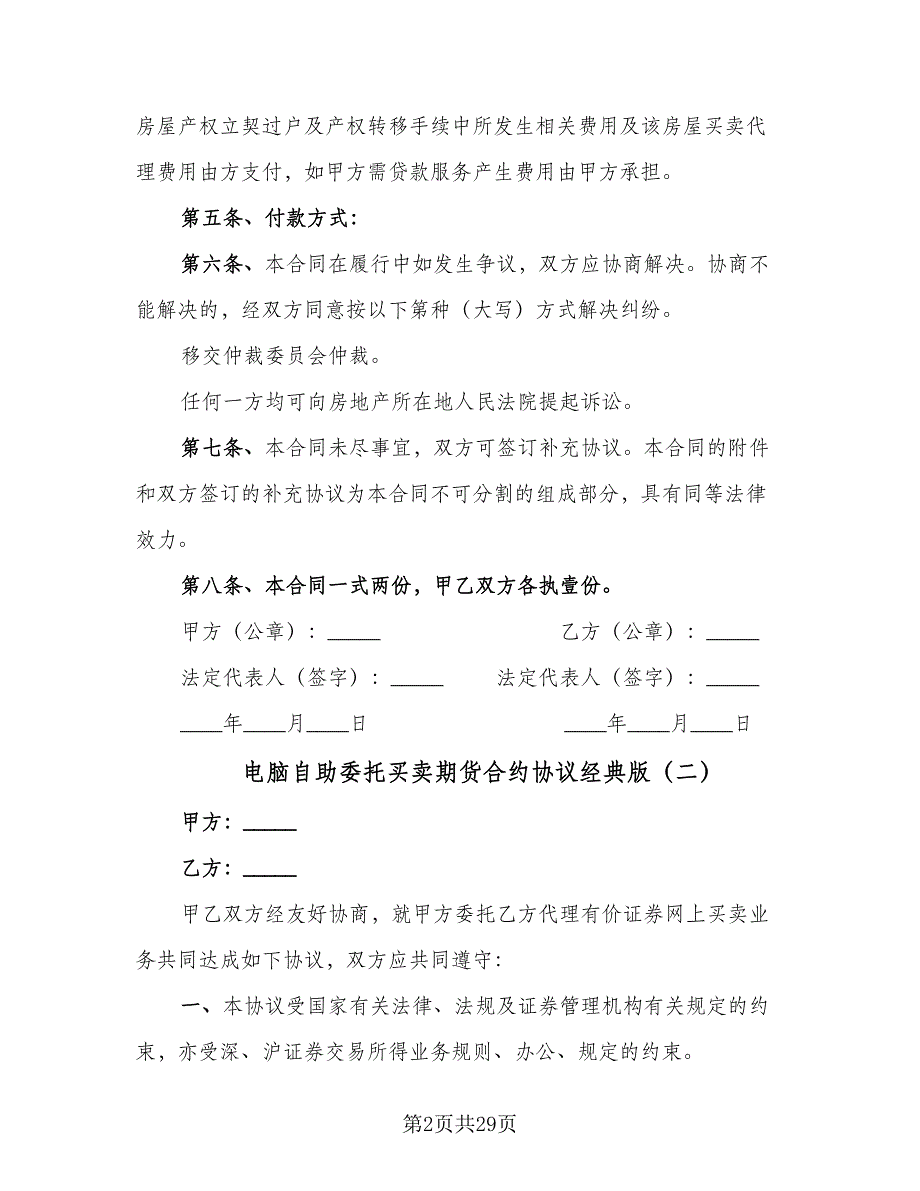 房屋产权立契过户及产权转移手续中所发生相关费用及该房屋买卖代
理费用由方支付，如甲方需贷款服务产生费用由甲方承担。
第五条、付款方式：
第六条、本合同在履行中如发生争议，双方应协商解决。协商不
能解决的，经双方同意按以下第种（大写）方式解决纠纷。
移交仲裁委员会仲裁。
任何一方均可向房地产所在地人民法院提起诉讼。
第七条、本合同未尽事宜，双方可签订补充协议。本合同的附件
和双方签订的补充协议为本合同不可分割的组成部分，具有同等法律
效力。
第八条、本合同一式两份，甲乙双方各执壹份。
甲方（公章）：_____ 乙方（公章）：_____
法定代表人（签字）：_____ 法定代表人（签字）：_____
____年____月____日 ____年____月____日
电脑自助委托买卖期货合约协议经典版（二）
甲方：_____
乙方：_____
甲乙双方经友好协商，就甲方委托乙方代理有价证券网上买卖业
务共同达成如下协议，双方应共同遵守：
一、本协议受国家有关法律、法规及证券管理机构有关规定的约
束，亦受深、沪证券交易所得业务规则、办公、规定的约束。
第2页共29页